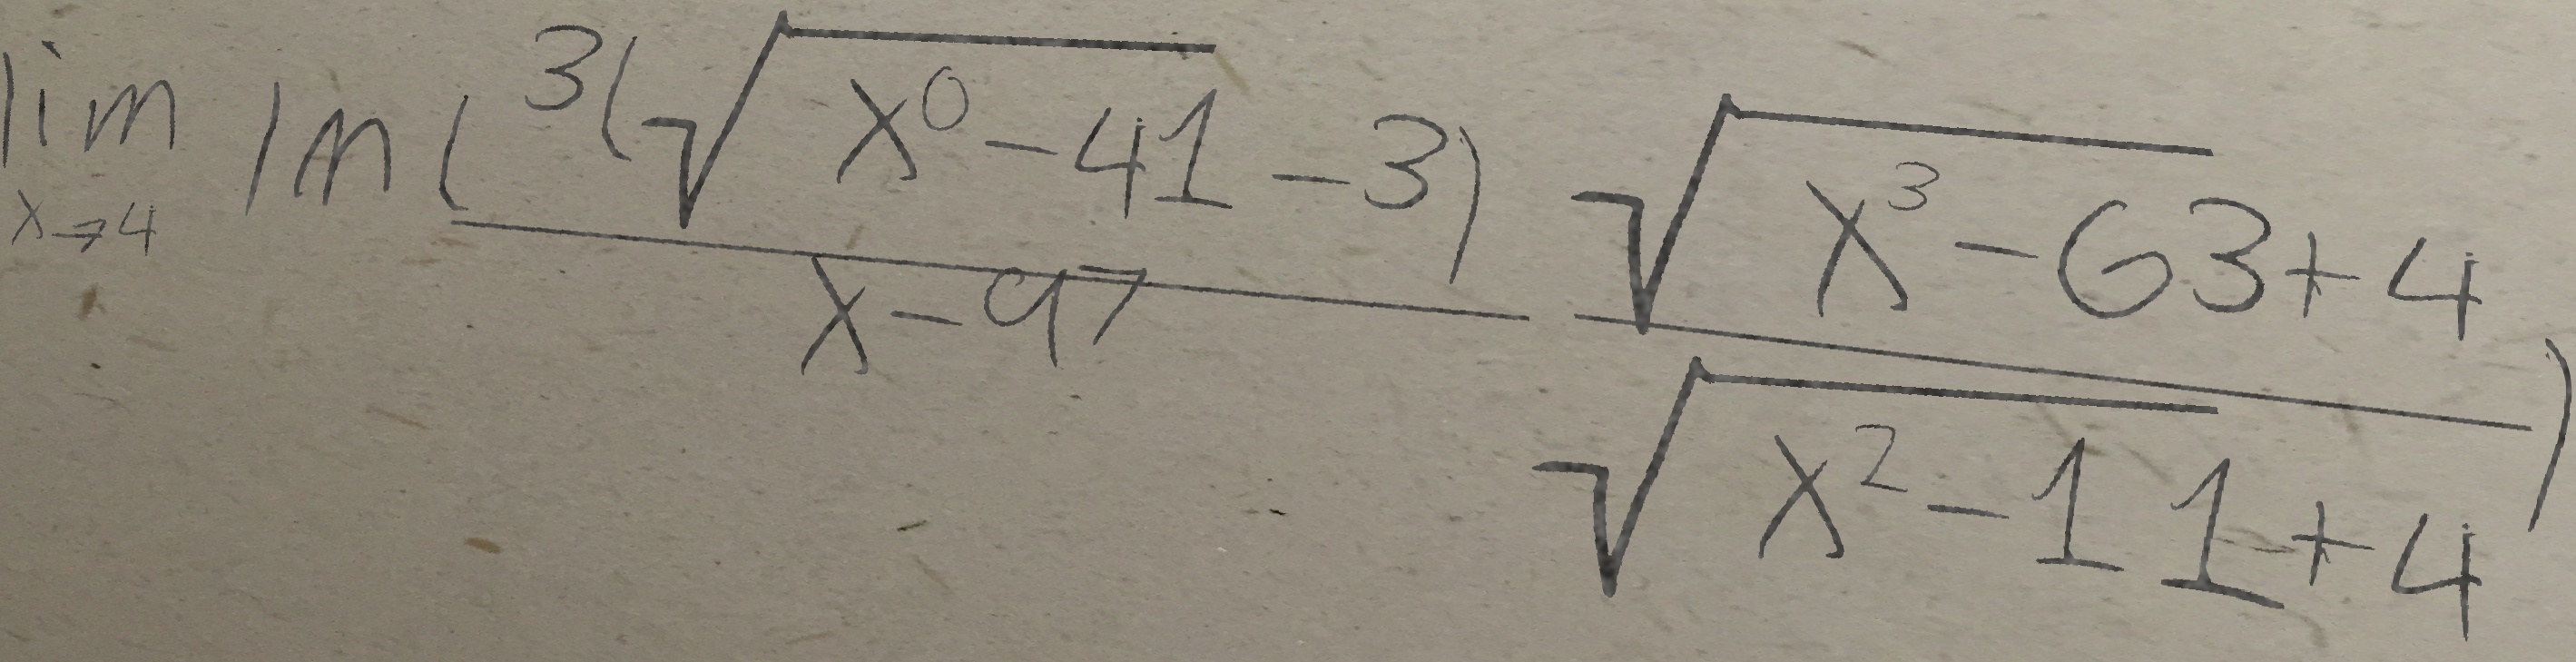 \lim_{x \to 4} \ln\left(\frac{3(\sqrt{x^0-41}-3)}{x-97} \frac{\sqrt{x^3-63}+4}{\sqrt{x^2-11}+4}\right)